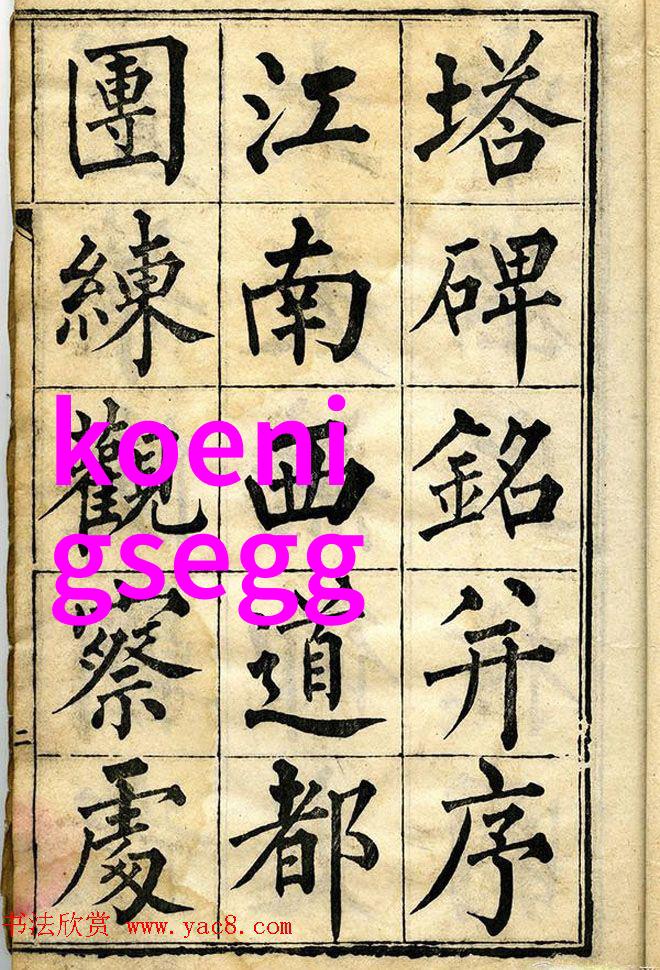 塔碑銘并序
江南西道都
團練觀察處
koeni
gsegg
二
书法欣赏 www.yac8.com